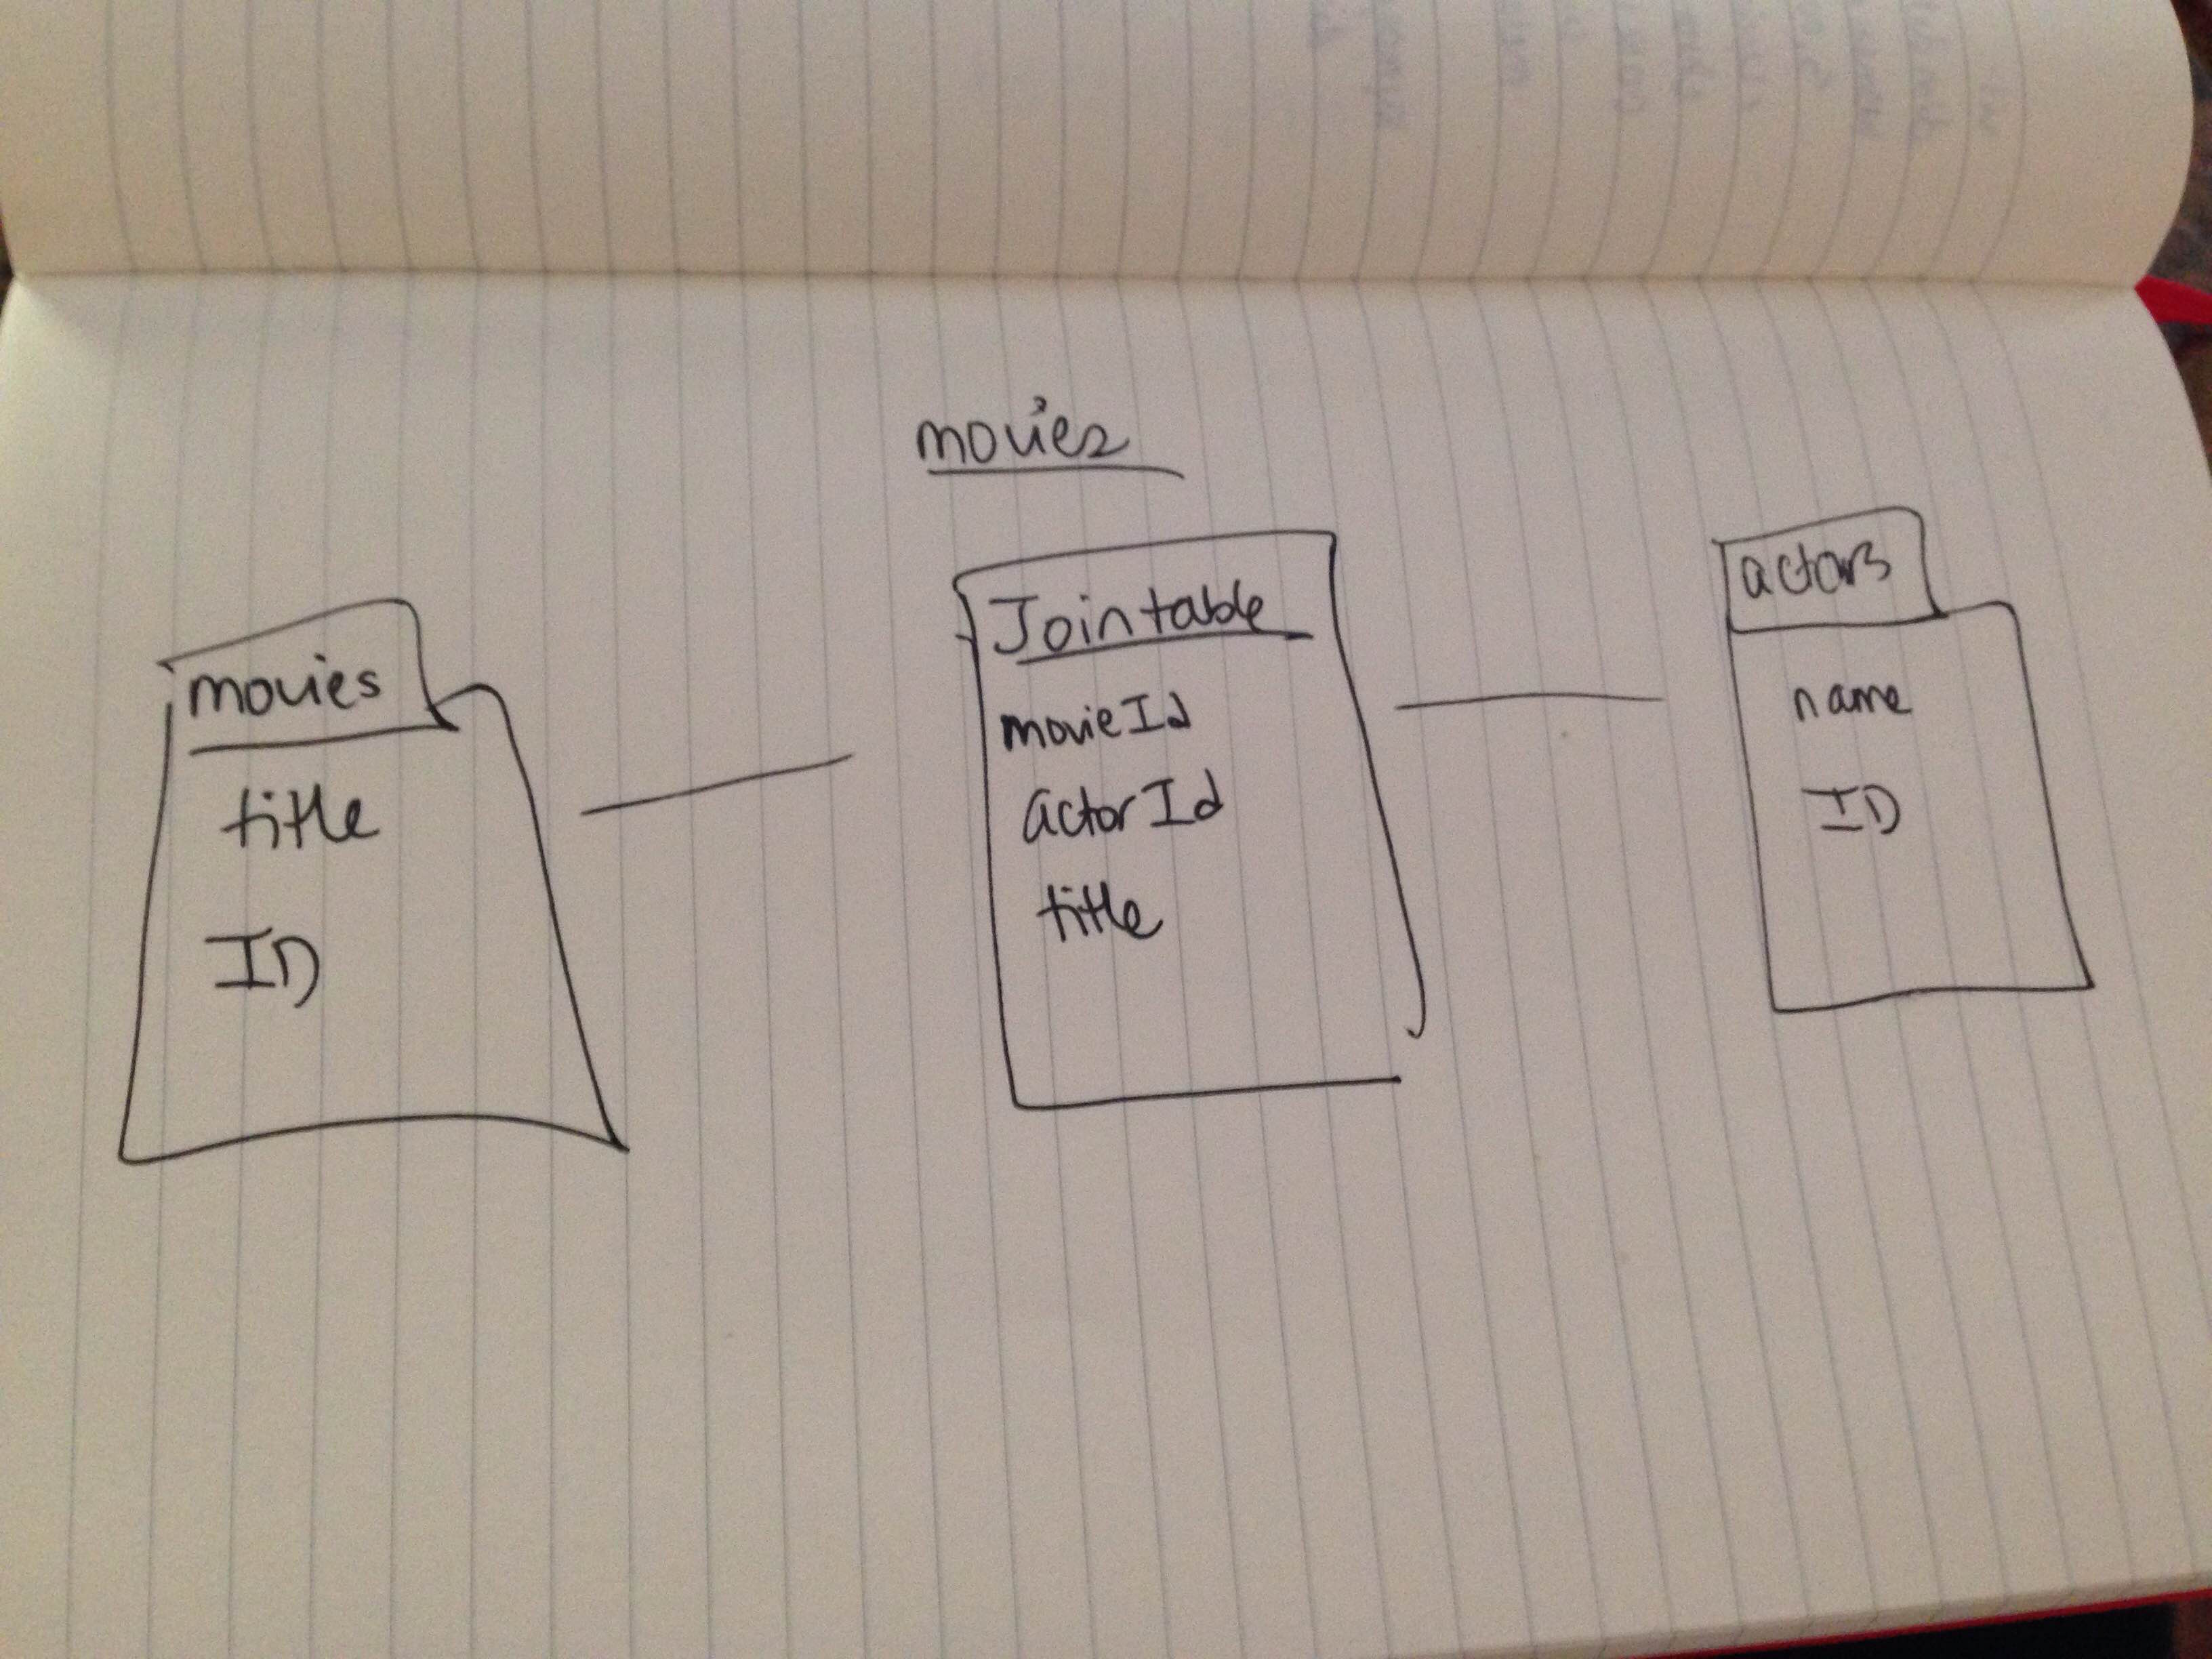 movies
movies
title
ID
Join table
movieId
actorId
title
actors
name
ID